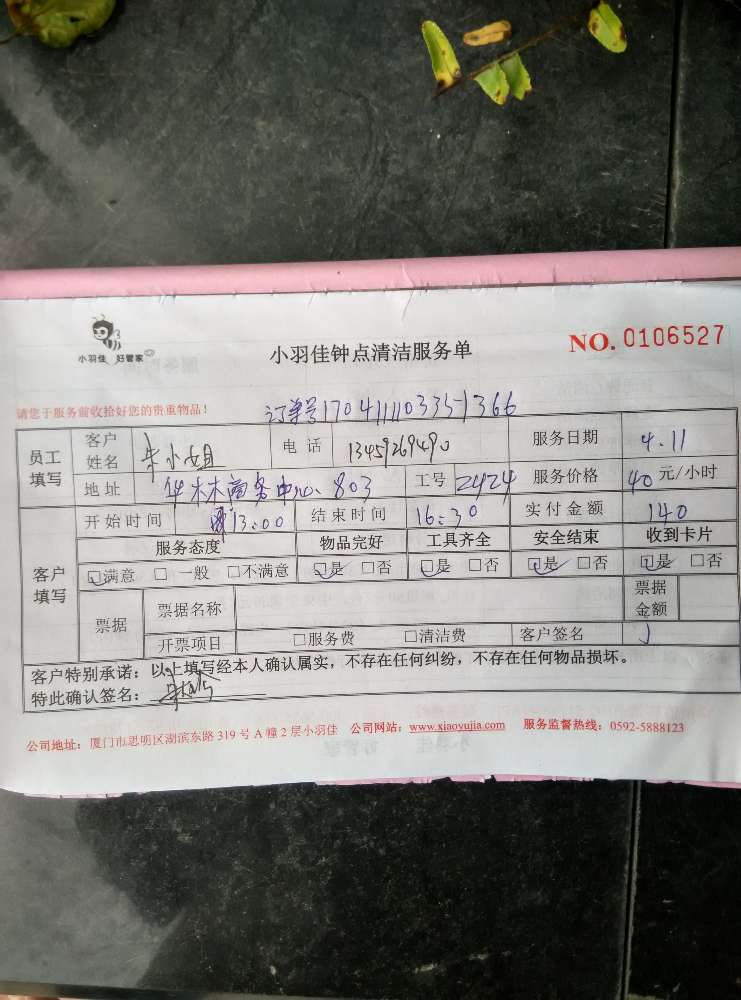 小羽佳 好管家
小羽佳钟点清洁服务单
NO. 0106527
请您于服务前收拾好您的贵重物品！
订单号17041111033571366
员工填写 客户姓名 朱小姐 电话 13459269490 服务日期 4.11
地址 华林商务中心、803 工号 2424 服务价格 40元/小时
客户填写 开始时间 13:00 结束时间 16:30 实付金额 140
服务态度 物品完好 工具齐全 安全结束 收到卡片
☑满意 □一般 □不满意 ☑是 □否 ☑是 □否 ☑是 □否 ☑是 □否
票据 票据名称 票据金额
开票项目 □服务费 □清洁费 客户签名
客户特别承诺：以上填写经本人确认属实，不存在任何纠纷，不存在任何物品损坏。
特此确认签名：
公司地址：厦门市思明区湖滨东路 319 号 A 幢 2 层小羽佳 公司网站：www.xiaoyujia.com 服务监督热线：0592-5888123